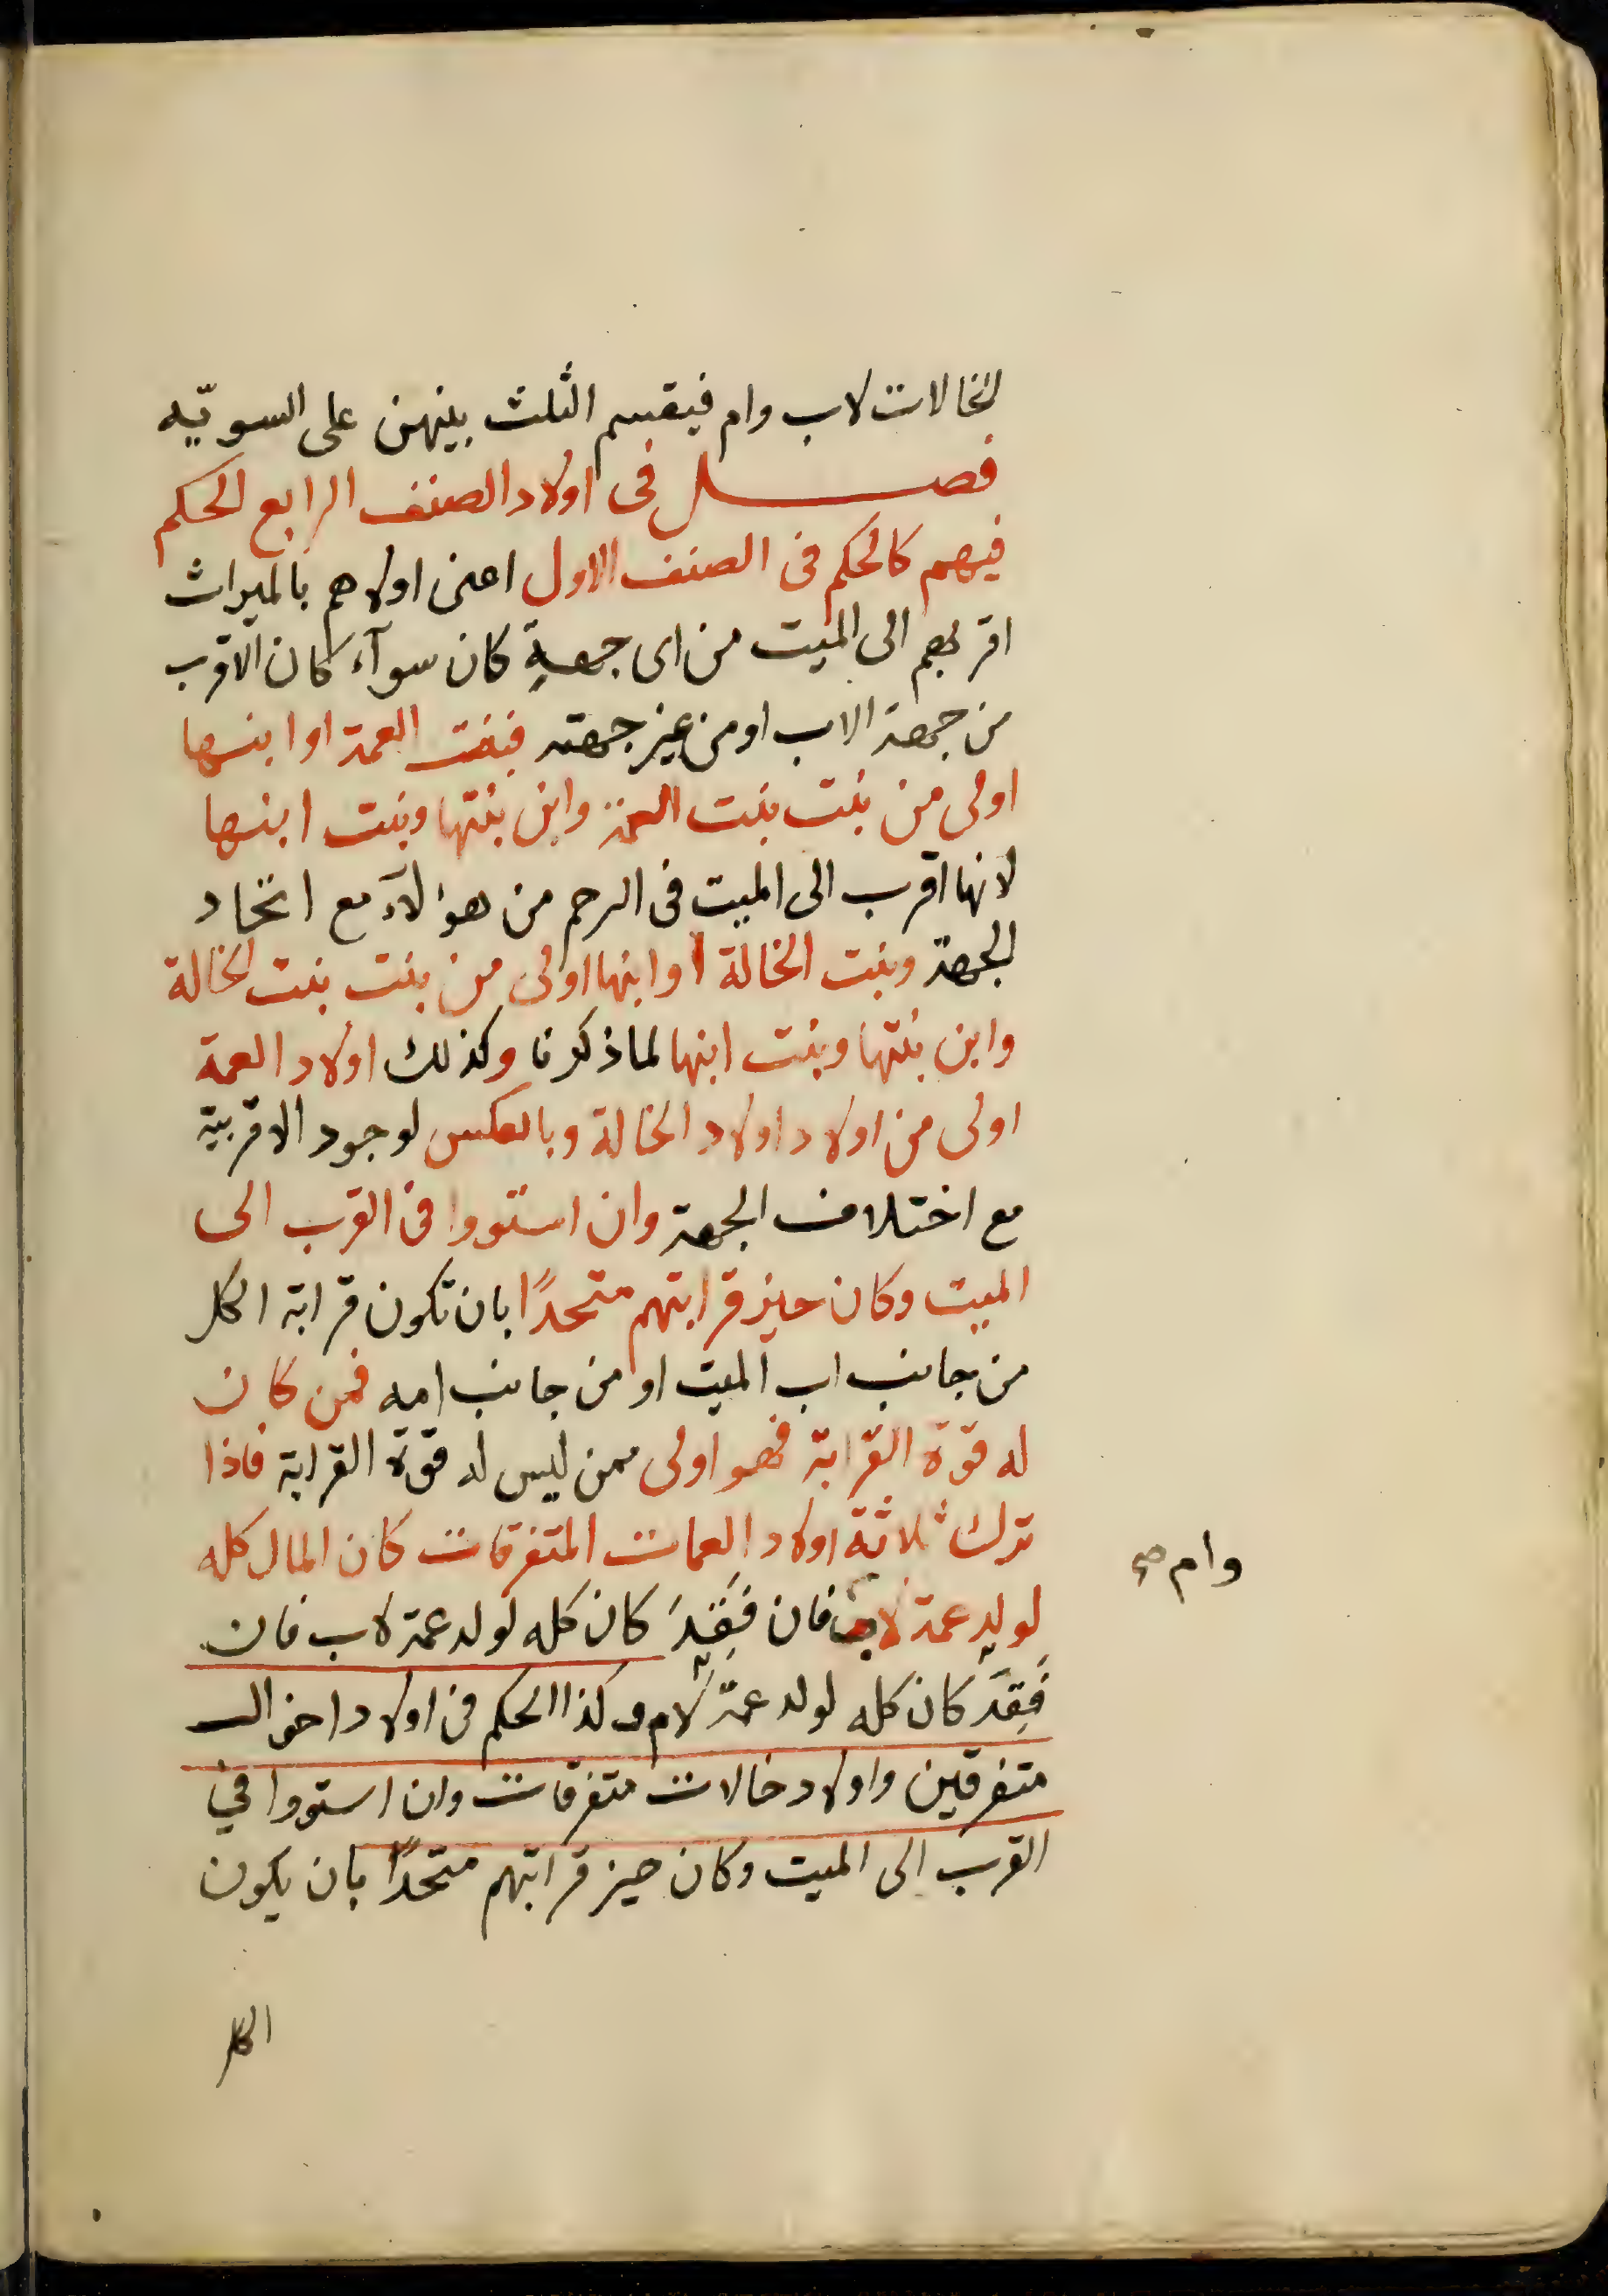 الخالات لاب وام فيقسم الثلث بينهن على السويّه
فصل فى اولاد الصنف الرابع الحكم
فيهم كالحكم فى الصنف الاول اعنى اولاهم بالميراث
اقربهم الى الميت من اى جهةٍ كان سوآء كان الاقرب
من جهة الاب او من غير جهته فبنت العمة او ابنها
اولى من بنت بنت العمة وابن بنتها وبنت ابنها
لانها اقرب الى الميت فى الرحم من هؤلآء مع اتحاد
الجهة وبنت الخالة او ابنها اولى من بنت بنت الخالة
وابن بنتها وبنت ابنها لما ذكرنا وكذلك اولاد العمة
اولى من اولاد اولاد الخالة وبالعكس لوجود الاقربية
مع اختلاف الجهة وان استووا فى القرب الى
الميت وكان حيز قرابتهم متحدًا بان تكون قرابة الكل
من جانب اب الميت او من جانب امه فمن كان
له قوة القرابة فهو اولى ممن ليس له قوة القرابة فاذا
ترك ثلاثة اولاد العمات المتفرقات كان المال كله
لولد عمة لاب فان فُقِدَ كان كله لولد عمة لاب فان
فُقِدَ كان كله لولد عمة لام وكذا الحكم فى اولاد اخوال
متفرقين واولاد خالات متفرقات وان استووا في
القرب الى الميت وكان حيز قرابتهم متحدًا بان يكون
الكل
وام صح